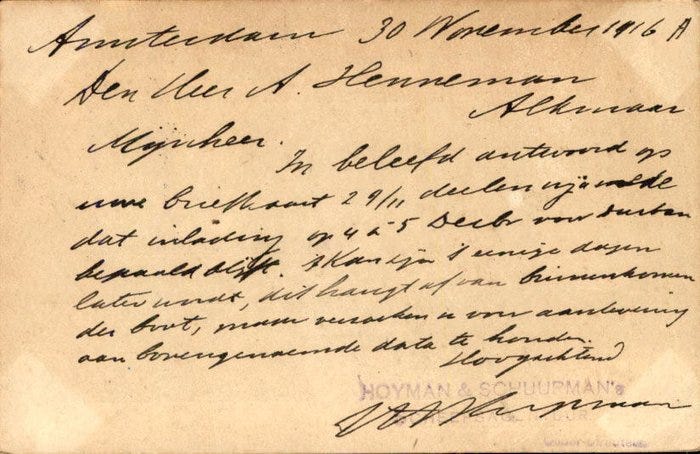 Amsterdam 30 November 1916 A
Den Heer A. Henneman
Alkmaar
Mijnheer.
In beleefd antwoord op
uwe briefkaart 29/11 deelen wij mede
dat inlading op 4 à 5 Decbr voor Durban
bepaald blijft. Kan zijn 't eenige dagen
later wordt, dit hangt af van binnenkomen
der boot, maar verzoeken u voor aanlevering
aan bovengenoemde data te houden.
Hoogachtend
HOYMAN & SCHUURMAN's